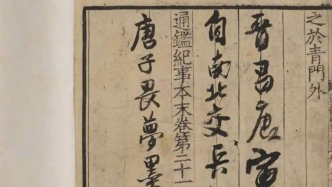 之於青門外
晉昌唐寅
自南北交兵
通鑑紀事本末卷第二十一
唐子畏夢墨